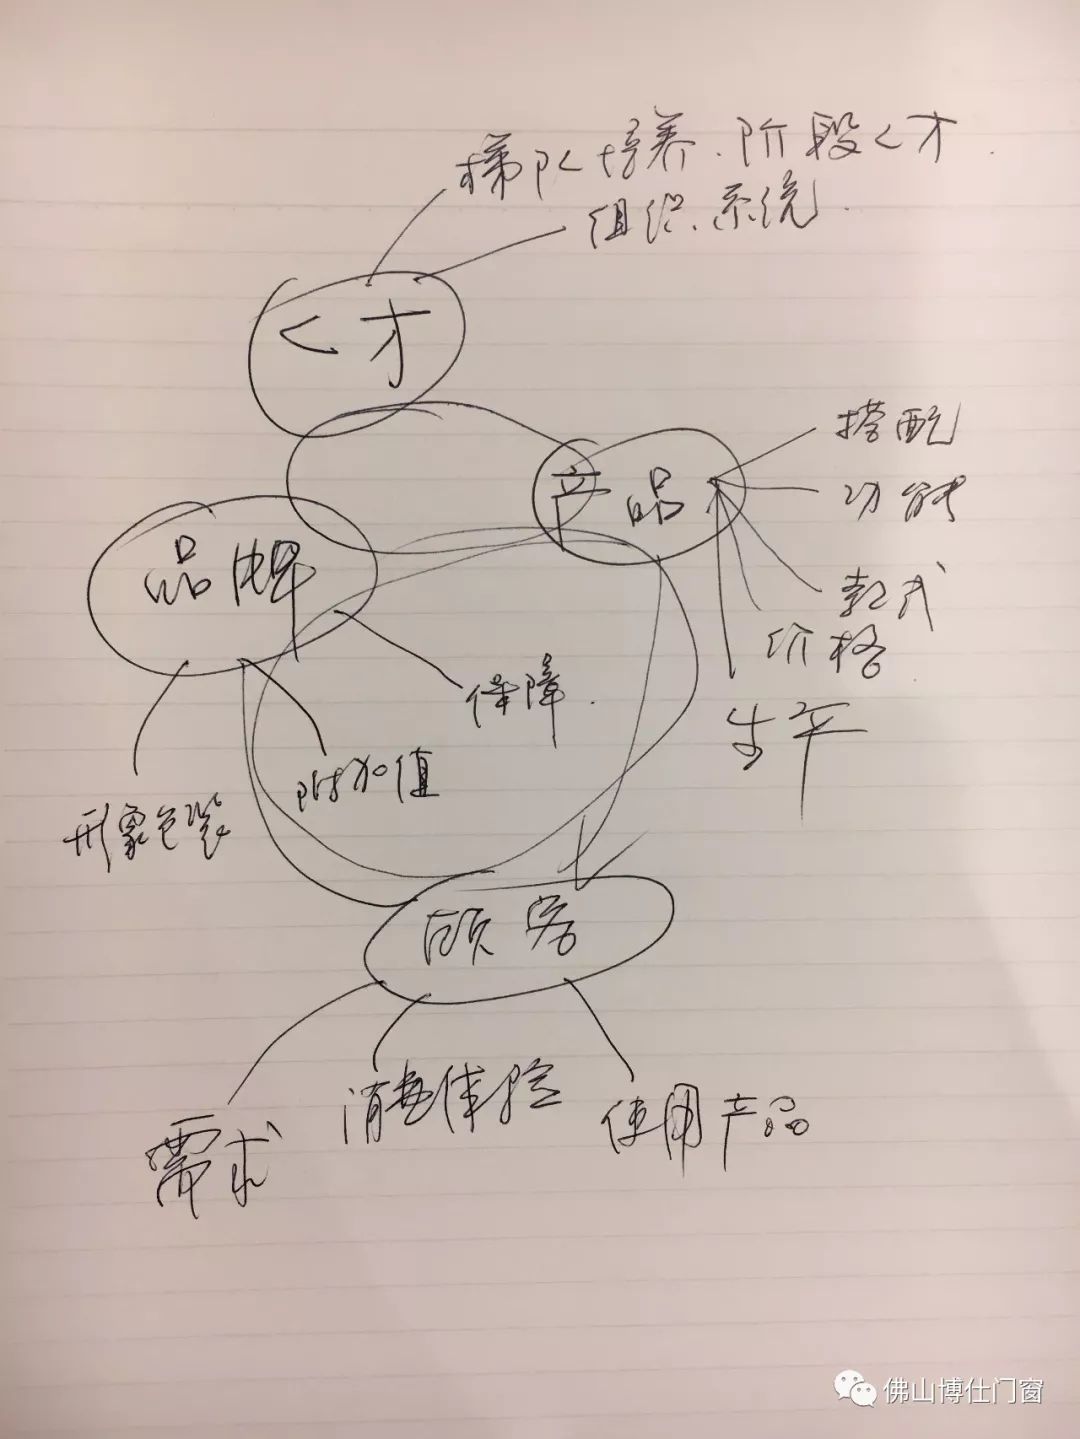 梯队培养.阶段人才.
组织.系统.
人才
搭配
产品
功能
品牌
款式
价格
保障.
生产
附加值
形象包装
顾客
消费体验
使用产品
需求
佛山博仕门窗